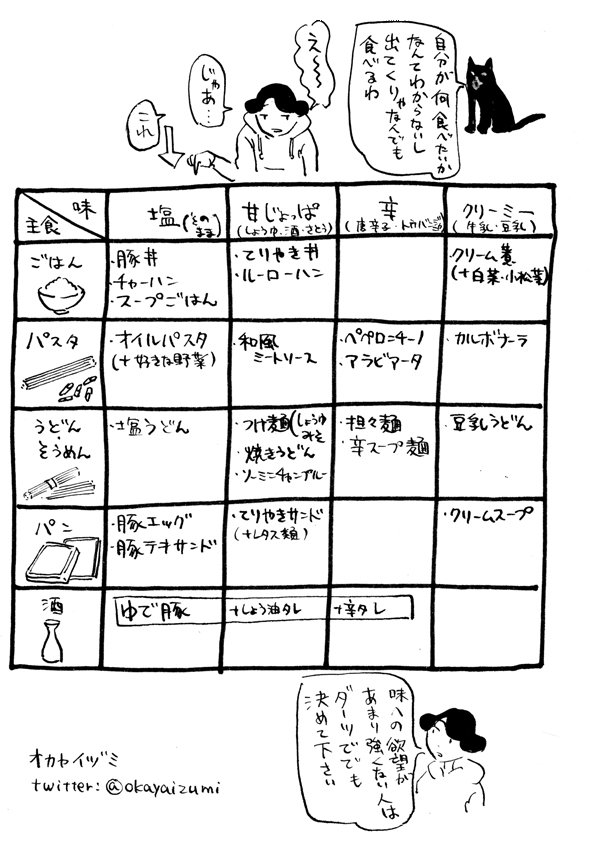 自分が何食べたいか
なんてわからないし
出てくりゃなんでも
食べるわ
え〜〜
じゃあ…
これ
味
主食
塩(そのまま)
甘じょっぱ
(しょうゆ・酒・さとう)
辛
(唐辛子・トウバンジャン)
クリーミー
(牛乳・豆乳)
ごはん
・豚丼
・チャーハン
・スープごはん
・てりやき丼
・ルーローハン
・クリーム煮
(+白菜・小松菜)
パスタ
・オイルパスタ
(+好きな野菜)
・和風
ミートソース
・ペペロンチーノ
・アラビアータ
・カルボナーラ
うどん
・
そうめん
・塩うどん
・つけ麺(しょうゆ
みそ
・焼きうどん
・ソーミンチャンプルー
・担々麺
・辛スープ麺
・豆乳うどん
パン
・豚エッグ
・豚テキサンド
・てりやきサンド
(+レタス麺)
・クリームスープ
酒
ゆで豚
+しょう油タレ
+辛タレ
味への欲望が
あまり強くない人は
ダーツででも
決めて下さい
オカヤイヅミ
twitter:@okayaizumi